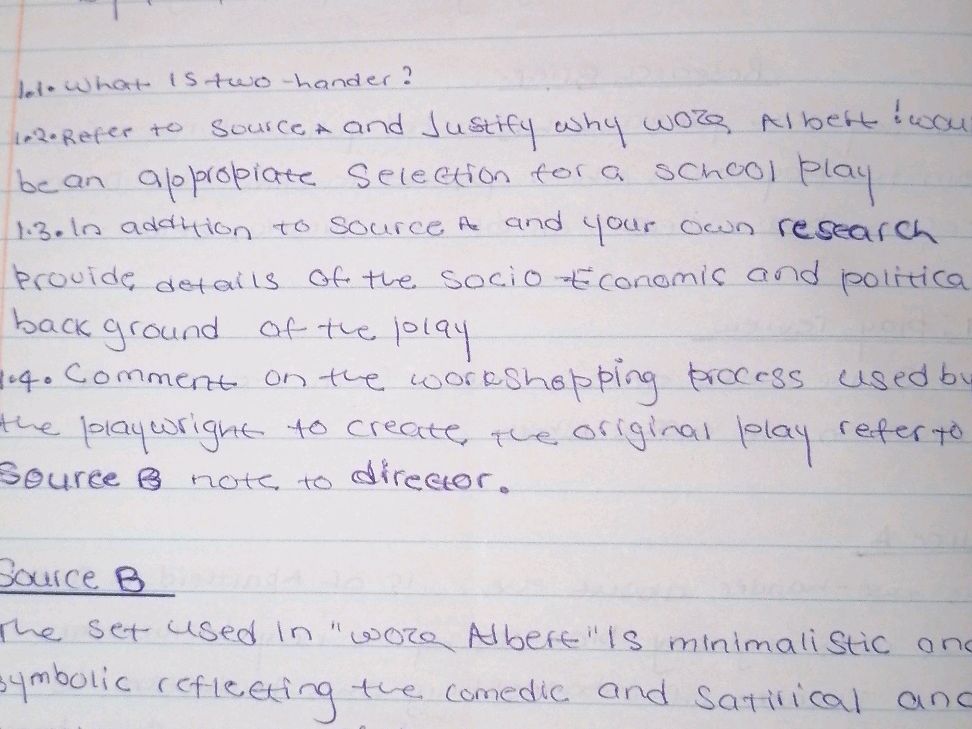 1.1. What is two-hander?
1.2. Refer to Source A and Justify why woza Albert! wou
be an appropiate Selection for a school play
1.3. In addition to source A and your own research
Provide details of the socio-Economic and politica
background of the play
1.4. Comment on the workshopping process used by
the playwright to create the original play refer to
Source B note to director.
Source B
The set used in "woza Albert" is minimalistic and
symbolic reflecting the comedic and Satirical and